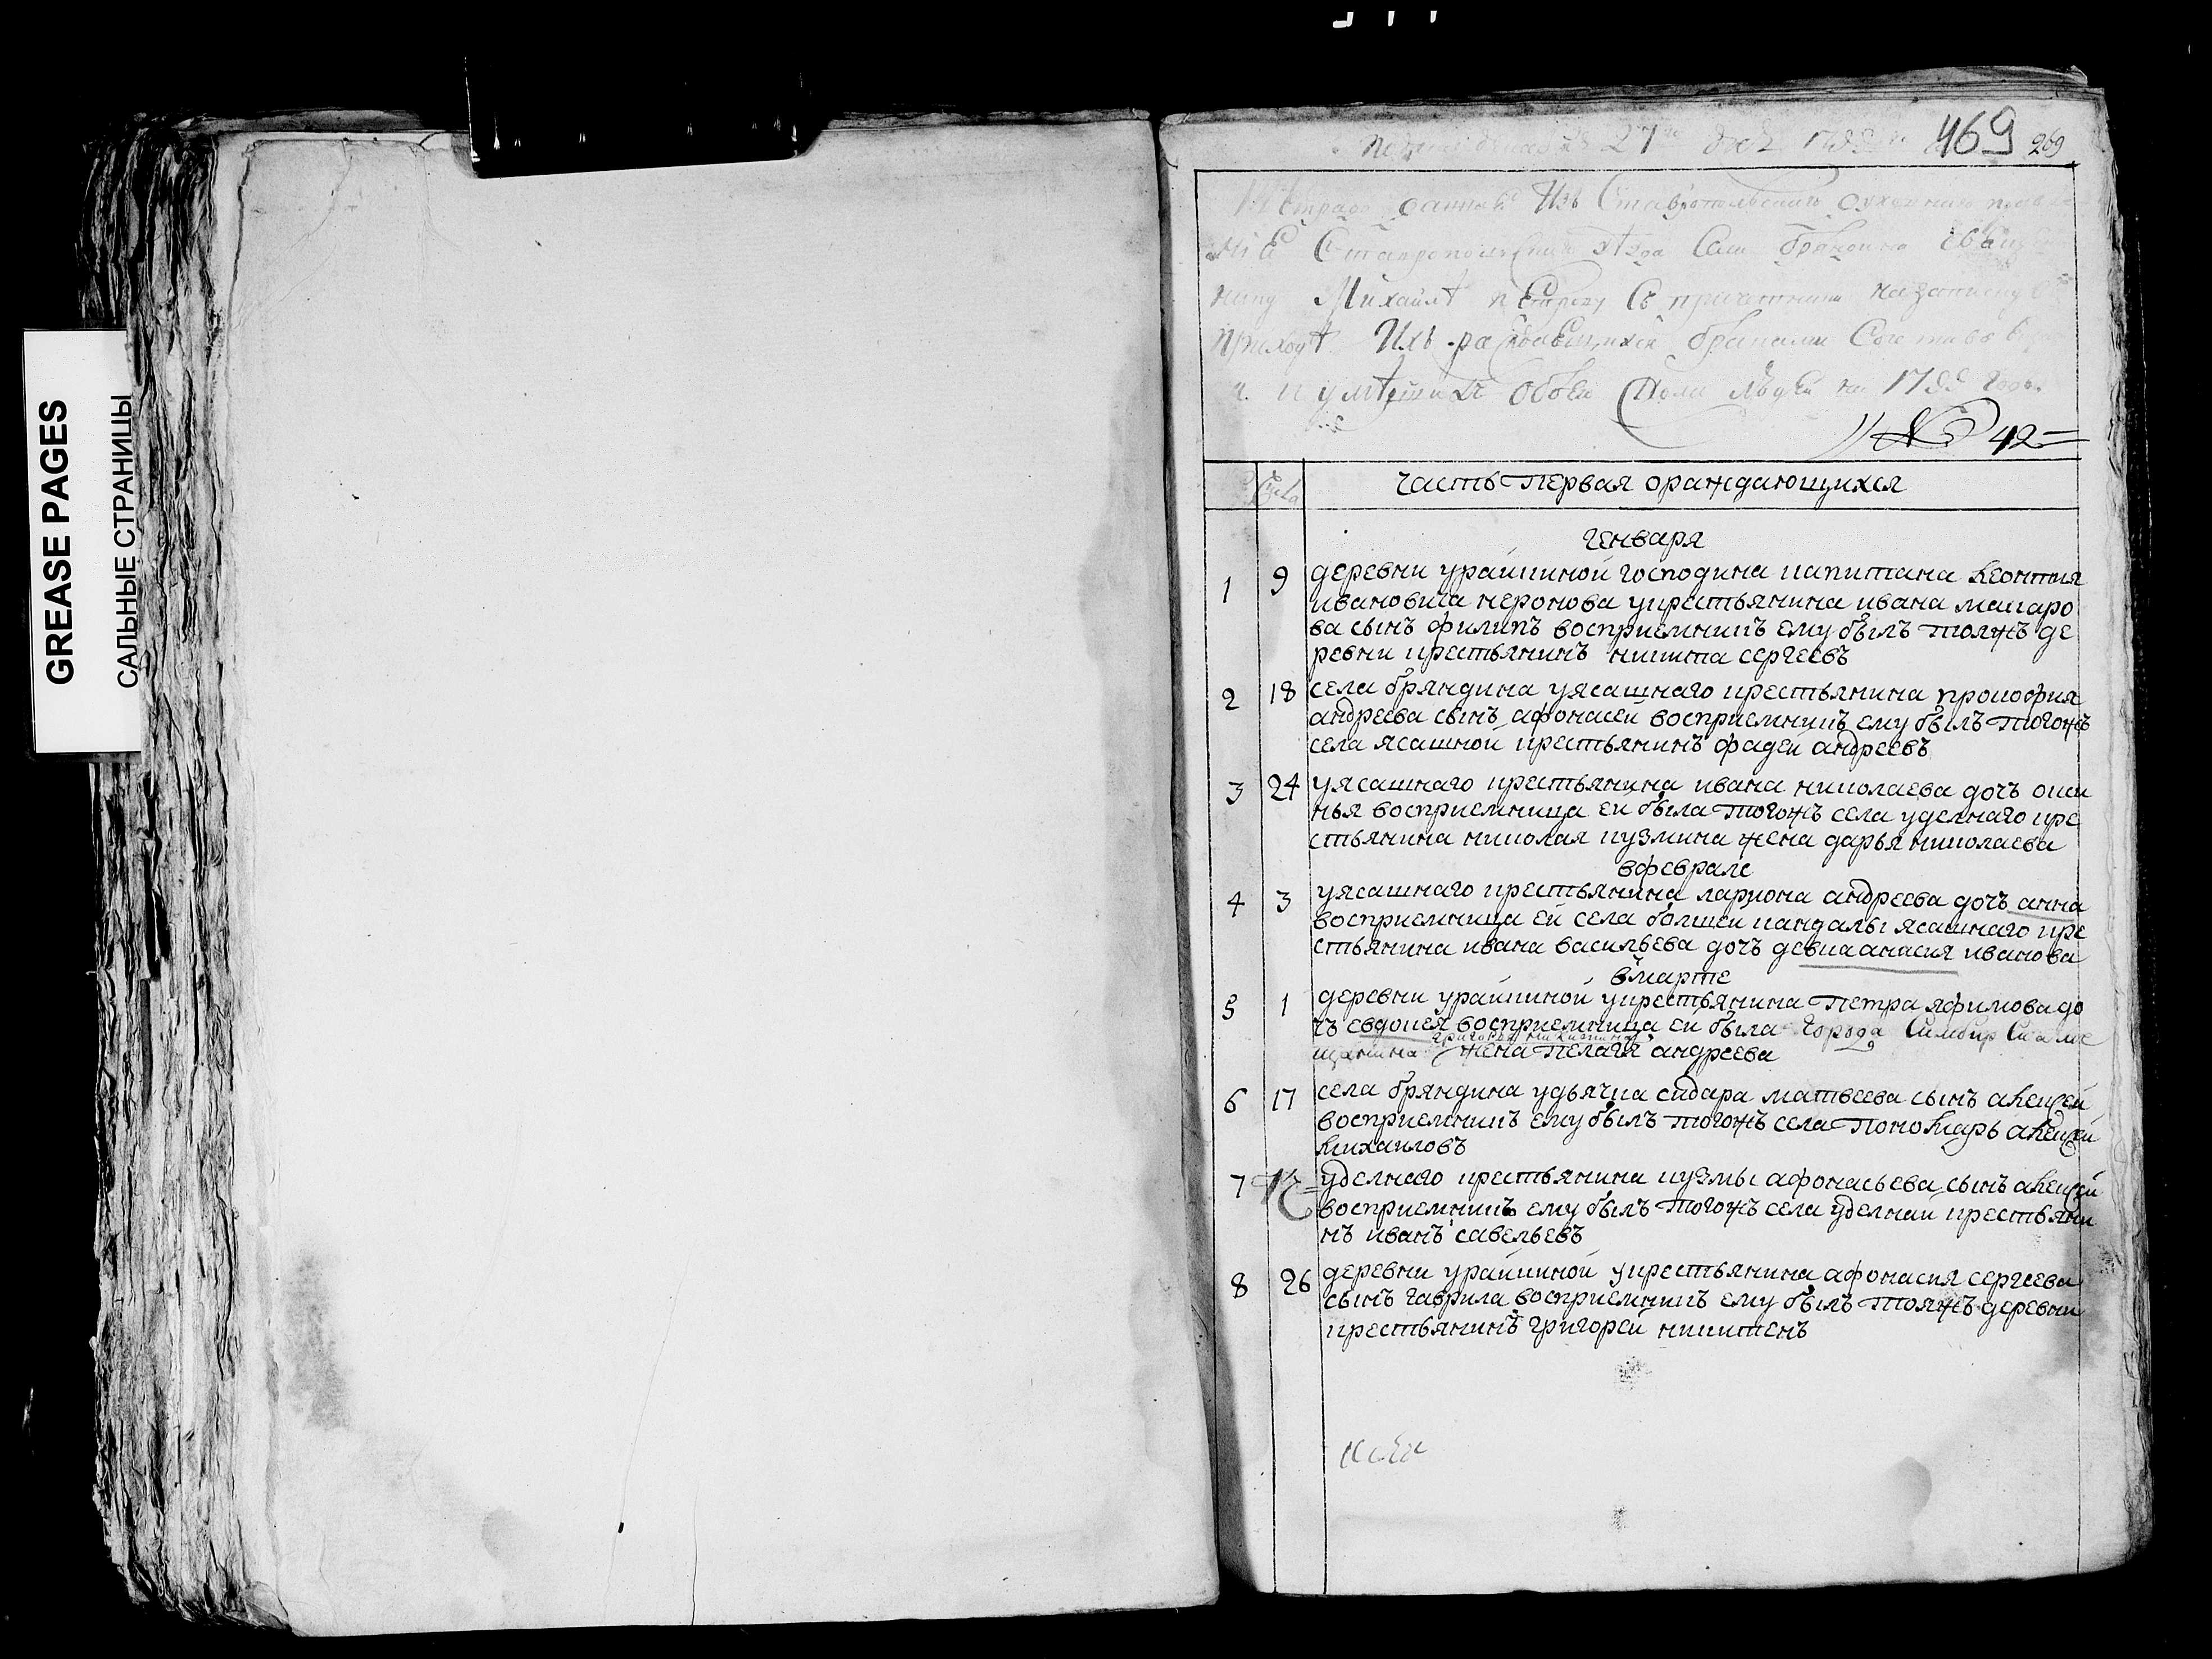 GREASE PAGES
САЛЬНЫЕ СТРАНИЦЫ
27 1799
469 269
Изъ Ставропольскаго духовнаго
Ставропольской села Бряндина
Михаилѣ Петрову съ причетники
приходѣ ихъ браками
и умѣрших обоего пола людей на 1799 годъ
№ 42
Числа
часть первая ораждающихся
генваря
1 9 деревни урайкиной господина капитана леонтия
ивановича неронова укрестьянина ивана макаро
ва сынъ филипъ восприемникъ ему былъ тояжъ де
ревни крестьянинъ никита сергеевъ
2 18 села бряндина уясашнаго крестьянина прокофия
андреева сынъ афонасей восприемникъ ему былъ тогожъ
села ясашной крестьянинъ фадей андреевъ
3 24 уясашнаго крестьянина ивана николаева дочъ окси
нья восприемница ей была тогожъ села уделнаго кре
стьянина николая кузмина жена дарья николаева
вфеврале
4 3 уясашнаго крестьянина лариона андреева дочъ анна
восприемница ей села болшей кандалы ясашнаго кре
стьянина ивана васильева дочъ девка анасия иванова
вмарте
5 1 деревни урайкиной укрестьянина петра яфимова до
чъ евдокея восприемница ей была города Симбирска ме
григорья никитина
щанина жена пелагея андреева
6 17 села бряндина удьячка сидара матвеева сынъ алексей
восприемникъ ему былъ тогожъ села пономарь алексей
михаиловъ
7 уделнаго крестьянина кузмы афонасьева сынъ алексей
восприемникъ ему былъ тогожъ села уделнай крестьяни
нъ иванъ савельевъ
8 26 деревни урайкиной укрестьянина афонасия сергеева
сынъ гаврила восприемникъ ему былъ тояжъ деревни
крестьянинъ григорей никитенъ